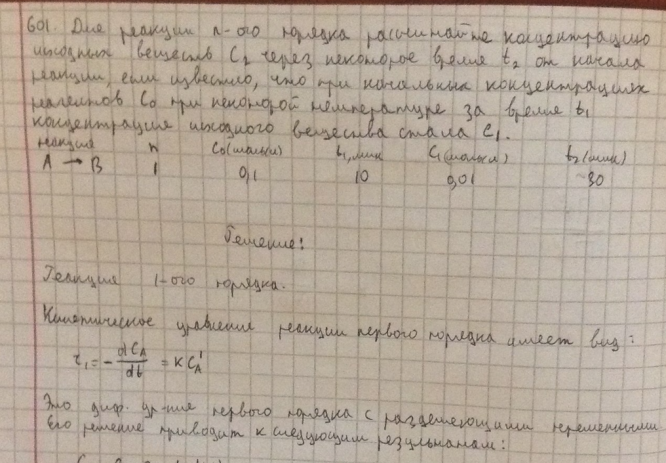 601. Для реакции n-ого порядка рассчитайте концентрацию
исходных веществ C₂ через некоторое время t₂ от начала
реакции, если известно, что при начальных концентрациях
реагентов C₀ при некоторой температуре за время t₁
концентрация исходного вещества стала C₁.
реакция n C₀ (моль/л) t₁, мин C₁ (моль/л) t₂ (мин)
A → B 1 0,1 10 0,01 30
Решение:
Реакция 1-ого порядка.
Кинетическое уравнение реакции первого порядка имеет вид:
r₁ = - dC_A/dt = K C_A¹
Это диф. ур-ние первого порядка с разделяющими переменными
Его решение приводит к следующим результатам: